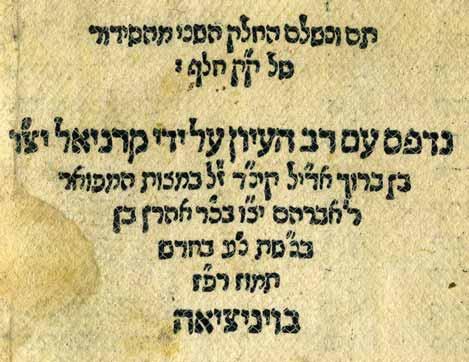 תם ונשלם החלק השני מהסידור
של ק״ק חלף :
נדפס עם רב העיון על ידי קרניאל יצ״ו
בן ברוך אדיל קינ״ד ז״ל במצות המפואר
ר׳ אברהם יצ״ו בכ״ר אהרן בן
נ״ע בחדש
תמוז רפ״ז
בויניציאה